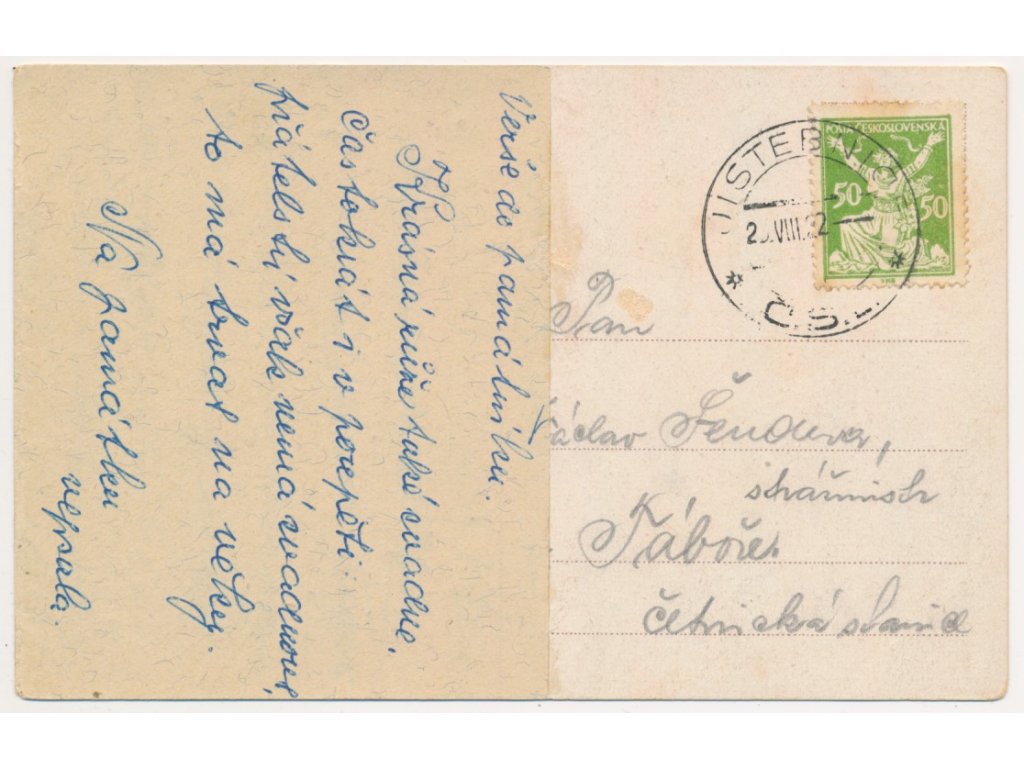 Verše do památníku.
Krásná růže také zvadne,
Častokrát i v poupěti
přátelství však nemá zvadnout,
to má trvat na věky.
Na památku
vepsala.
POŠTA ČESKOSLOVENSKÁ
50 50
JISTEBNICE
VIII.22
Č.S.
Pan
Václav
strážmistr
Táboře
četnická stanice